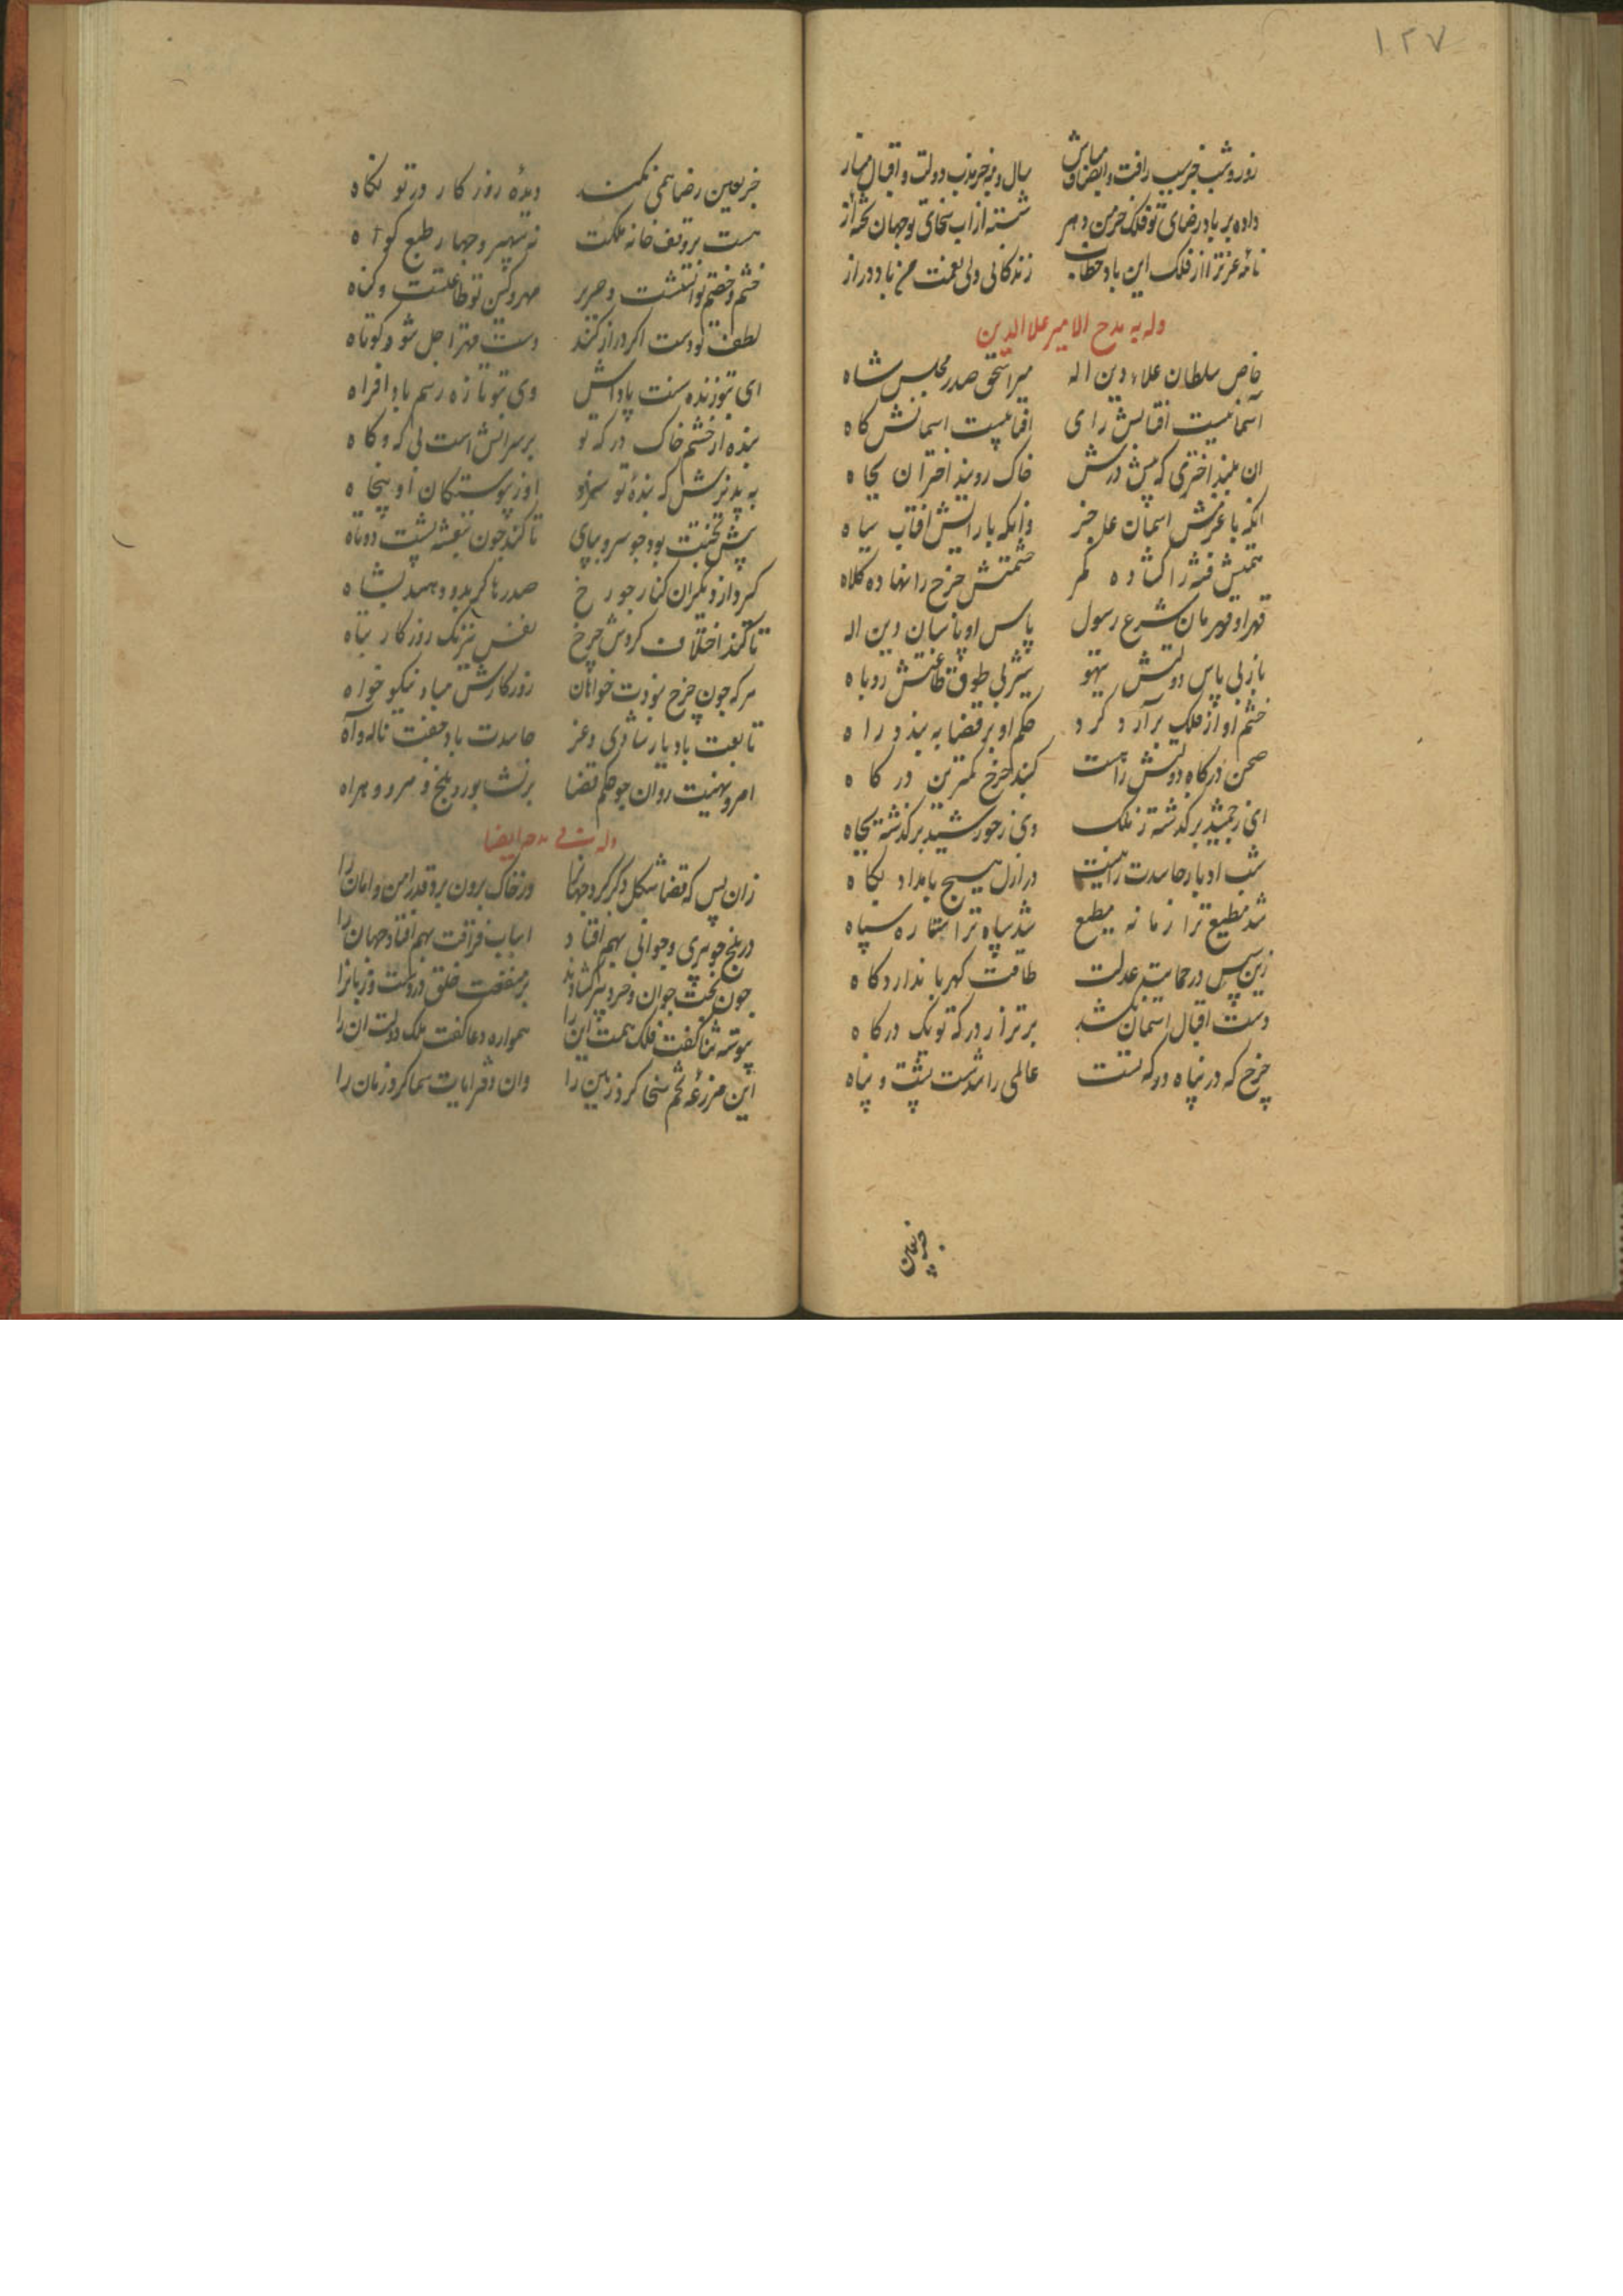 ۱۲۷
روز و شب جز سبب رافت و انصاف مباش سال و مه جز مدب دولت و اقبال مناز
داده بر باد رضای تو فلک خرمن دهر شسته از اب سخای تو جهان تخته آز
نامه عز ترا از فلک این باد خطاب زندکانی ولی نعمت من باد دراز
وله یمدح الامیر علاالدین
خاص سلطان علاء دین اله میر اسحق صدر مجلس شاه
آسمانیست افتابش رای افتابیست اسمانش کاه
ان بلند اختری که پیش درش خاک روبند اختران بجاه
انکه با عزمش اسمان عاجز وانکه با رایش افتاب سیاه
همتش فتنه را کشاده کمر حشمتش چرخ را نهاده کلاه
قهر او قهرمان شرع رسول پاس او پاسبان دین اله
باز بی پاس دولتش تیهو شیر بی طوق طاعتش روباه
خشم او از فلک برآرد کرد حکم او بر قضا ببندد راه
صحن درکاه دولتش را هست کنبد چرخ کمترین درکاه
ای ز جمشید برکذشته ز ملک وی ز خورشید برکذشته بجاه
شب ادبار حاسدت را نیست در ازل هیچ بامداد بکاه
شد مطیع ترا زمانه مطیع شد سپاه ترا ستاره سپاه
زین سپس در حمایت عدلت طاقت کهربا ندارد کاه
دست اقبال اسمان نکشد برتر از درکه تو یک درکاه
چرخ که در پناه درکه تست عالمی را شدست پشت و پناه
جز بعین
جز بعین رضا همی نکند دیدهٔ روزکار در تو نکاه
هست بر وقف خانه ملکت نه سپهر و چهار طبع کواه
خشم و خصم تو اتشست و حریر مهر و کین تو طاعتست و کناه
لطف تو دست اکر دراز کند دست قهر اجل شود کوتاه
ای بتو زنده سنت پاداش وی بتو تازه رسم باد افراه
بنده از خشم خاک درکه تو بر سر اتش است بی که و کاه
به پذیرش که بندهٔ تو سزد او ز پیوستکان او پنجاه
پیش تختت بود چو سرو بپای تا کند چون بنفشه پشت دوتاه
کرد از دیکران کنار چو رخ صدرها کر بدو دهد بشاه
تا کند اختلاف کردش چرخ نفس نیرنک روزکار تباه
هر که چون چرخ نبودت خواهان روزکارش مباد نیکو خواه
تابعت باد یار شادی و عز حاسدت باد جفت ناله و آه
امر و نهیت روان چو حکم قضا بر نشابور و بلخ و مرو و هراه
وله فی مدحه ایضا
زان پس که قضا شکل دکر کرد جهانرا وز خاک برون برد قدر امن و امان را
در بلخ چو پیری و جوانی بهم افتاد اسباب فراقت بهم افتاد جهان را
چون بخت جوان و خرد پیر کشادند بر منفعت خلق در دست و زبانرا
پیوسته ثنا کفت فلک همت این را همواره دعا کفت ملک دولت ان را
این مزرعه تخم سخا کرد زمین را وان دفتر ایات سما کرد زمان را